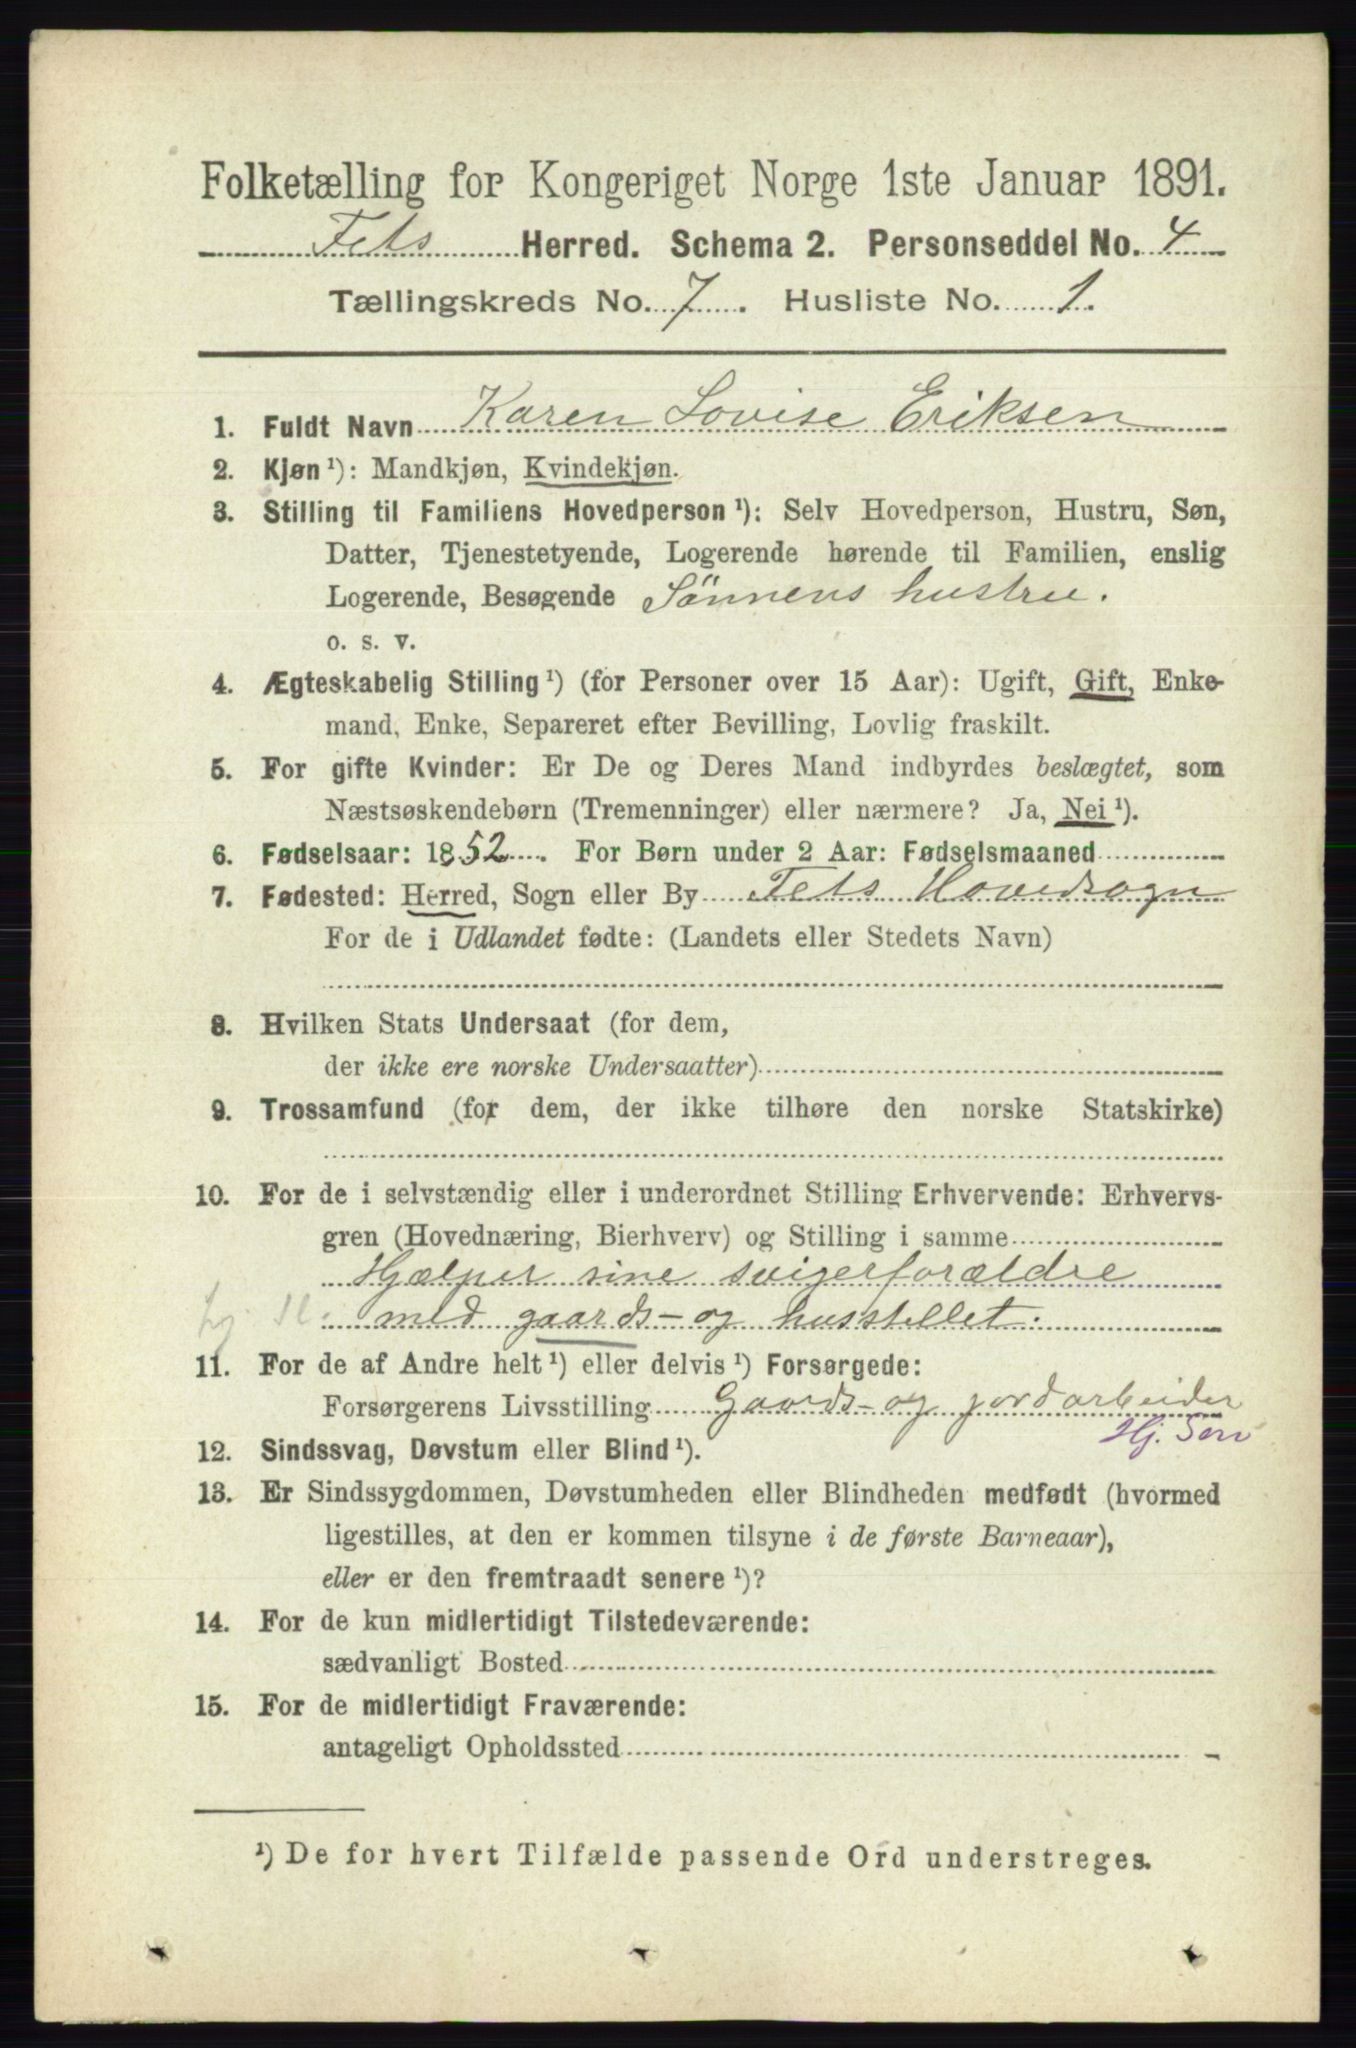 Folketælling for Kongeriget Norge 1ste Januar 1891.
Fets Herred. Schema 2. Personseddel No. 4
Tællingskreds No. 7. Husliste No. 1.
1. Fuldt Navn Karen Lovise Eriksen
2. Kjøn ¹): Mandkjøn, Kvindekjøn.
3. Stilling til Familiens Hovedperson ¹): Selv Hovedperson, Hustru, Søn,
Datter, Tjenestetyende, Logerende hørende til Familien, enslig
Logerende, Besøgende Sönnens hustru.
o. s. v.
4. Ægteskabelig Stilling ¹) (for Personer over 15 Aar): Ugift, Gift, Enke-
mand, Enke, Separeret efter Bevilling, Lovlig fraskilt.
5. For gifte Kvinder: Er De og Deres Mand indbyrdes beslægtet, som
Næstsøskendebørn (Tremenninger) eller nærmere? Ja, Nei ¹).
6. Fødselsaar: 1852. For Børn under 2 Aar: Fødselsmaaned
7. Fødested: Herred, Sogn eller By Fets Hovedsogn
For de i Udlandet fødte: (Landets eller Stedets Navn)
8. Hvilken Stats Undersaat (for dem,
der ikke ere norske Undersaatter)
9. Trossamfund (for dem, der ikke tilhøre den norske Statskirke)
10. For de i selvstændig eller i underordnet Stilling Erhvervende: Erhvervs-
gren (Hovednæring, Bierhverv) og Stilling i samme
Hjælper sine svigerforældre
med gaards- og husstellet.
11. For de af Andre helt ¹) eller delvis ¹) Forsørgede:
Forsørgerens Livsstilling Gaards- og jordarbeider
12. Sindssvag, Døvstum eller Blind ¹).
13. Er Sindssygdommen, Døvstumheden eller Blindheden medfødt (hvormed
ligestilles, at den er kommen tilsyne i de første Barneaar),
eller er den fremtraadt senere ¹)?
14. For de kun midlertidigt Tilstedeværende:
sædvanligt Bosted
15. For de midlertidigt Fraværende:
antageligt Opholdssted
¹) De for hvert Tilfælde passende Ord understreges.